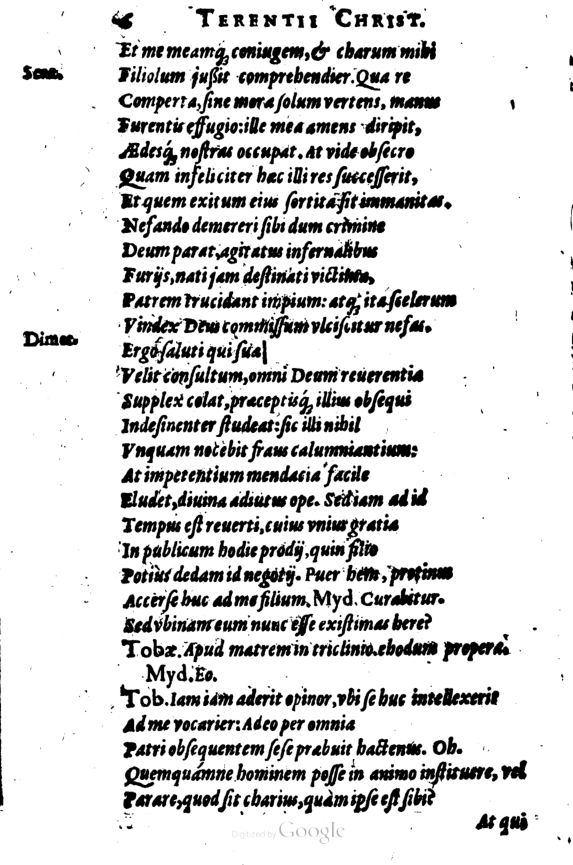 46 TERENTII CHRIST.
Et me meamq́, coniugem, & charum mihi
Senar. Filiolum jußit comprehendier. Qua re
Comperta, sine mora solum vertens, manus
Furentis effugio: ille mea amens diripit,
Ædesq́, nostras occupat. At vide obsecro
Quam infeliciter hæc illi res successerit,
Et quem exitum eius sortita sit immanitas.
Nefando demereri sibi dum crimine
Deum parat, agitatus infernalibus
Furijs, nati jam destinati victima,
Patrem trucidant impium: atq́, ita scelerum
Vindex Deus commissum vlciscitur nefas.
Dimet. Ergò saluti qui suæ
Velit consultum, omni Deum reuerentia
Supplex colat, præceptisq́, illius obsequi
Indesinenter studeat: sic illi nihil
Vnquam nocebit fraus calumniantium:
At impetentium mendacia facile
Eludet, diuina adiutus ope. Sed iam ad id
Tempus est reuerti, cuius vnius gratia
In publicum hodie prodij, quin filio
Potius dedam id negotij. Puer hem, protinus
Accerse huc ad me filium. Myd. Curabitur.
Sed vbinam eum nunc esse existimas here?
Tobæ. Apud matrem in triclinio. ehodum propera.
Myd. Eo.
Tob. Iam iam aderit opinor, vbi se huc intellexerit
Ad me vocarier: Adeo per omnia
Patri obsequentem sese præbuit hactenus. Oh.
Quemquámne hominem posse in animo instituere, vel
Parare, quod sit charius, quàm ipse est sibi?
At qui
Digitized by Google